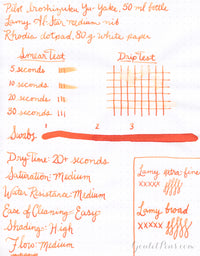 Pilot Iroshizuku Yu-Yake, 50 ml bottle
Lamy Al-Star medium nib
Rhodia dotpad, 80 g white paper
Smear Test
Drip Test
5 seconds
10 seconds
20 seconds
30 seconds
1 2 3
Swabs
Dry Time: 20+ seconds
Saturation: Medium
Water Resistance: Medium
Ease of Cleaning: Easy
Shading: High
Flow: Medium
Lamy extra-fine
xxxxx
Lamy broad
xxxxx
GouletPens.com